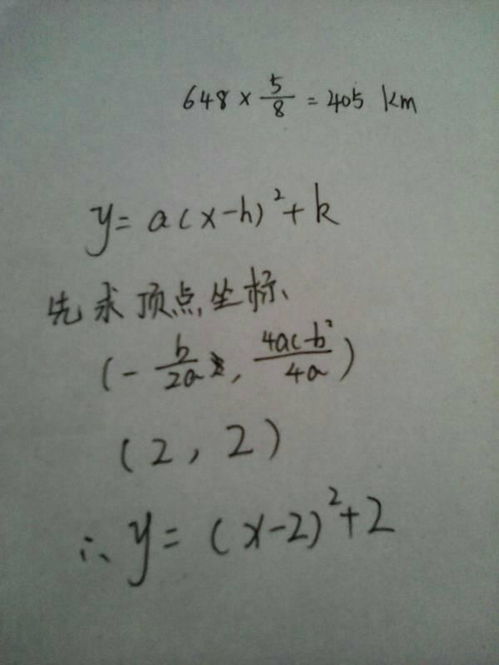 648 × 5/8 = 405 km
y = a(x-h)² + k
先求顶点坐标、
(- b/2a, 4ac-b²/4a)
(2, 2)
∴ y = (x-2)² + 2